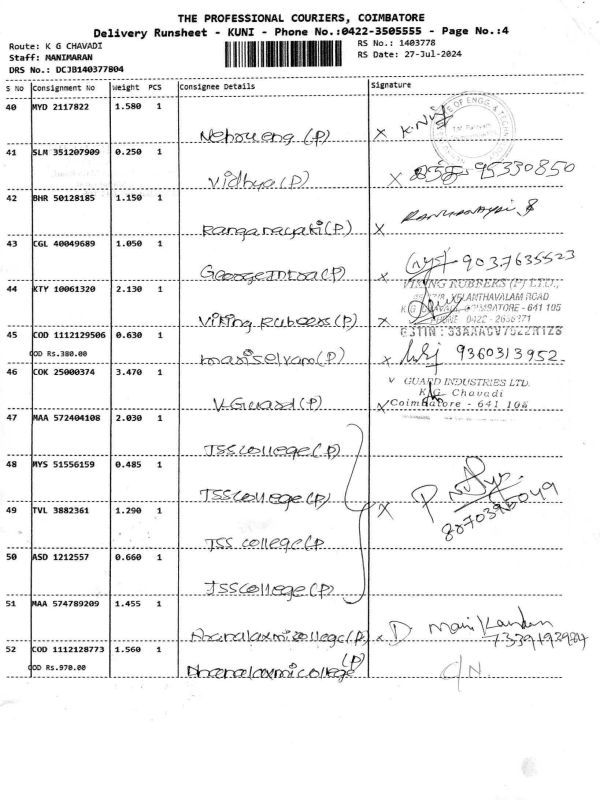 THE PROFESSIONAL COURIERS, COIMBATORE
Delivery Runsheet - KUNI - Phone No.:0422-3505555 - Page No.:4
Route: K G CHAVADI
RS No.: 1403778
Staff: MANIMARAN
RS Date: 27-Jul-2024
DRS No.: DCJB140377804
S No Consignment No Weight PCS Consignee Details Signature
40 MYD 2117822 1.580 1
Nehru eng (P) x
41 SLM 351207909 0.250 1
Vidhya (P) x 95330850
42 BHR 50128185 1.150 1
Ranganayaki (P) x
43 CGL 40049689 1.050 1
George (P) x 9037635523
44 KTY 10061320 2.130 1
VIKING RUBBERS (P) LTD.,
VELANTHAVALAM ROAD
COIMBATORE - 641 105
Viking Rubeers (P) x
45 COD 1112129506 0.630 1
COD Rs.380.00
mariselvam (P) x 9360313952
46 COK 25000374 3.470 1
V GUARD INDUSTRIES LTD.
K.G. Chavadi
Coimbatore - 641 105
V-Guard (P)
47 MAA 572404108 2.030 1
JSS college (P)
48 MYS 51556159 0.485 1
JSS college (P)
49 TVL 3882361 1.290 1
x P
JSS college (P
50 ASD 1212557 0.660 1
JSS college (P)
51 MAA 574789209 1.455 1
Dhanalaxmi college (P) x D. Mani Kandan
7339193984
52 COD 1112128773 1.560 1
COD Rs.970.00
Dhanalaxmi college (P)
C/N